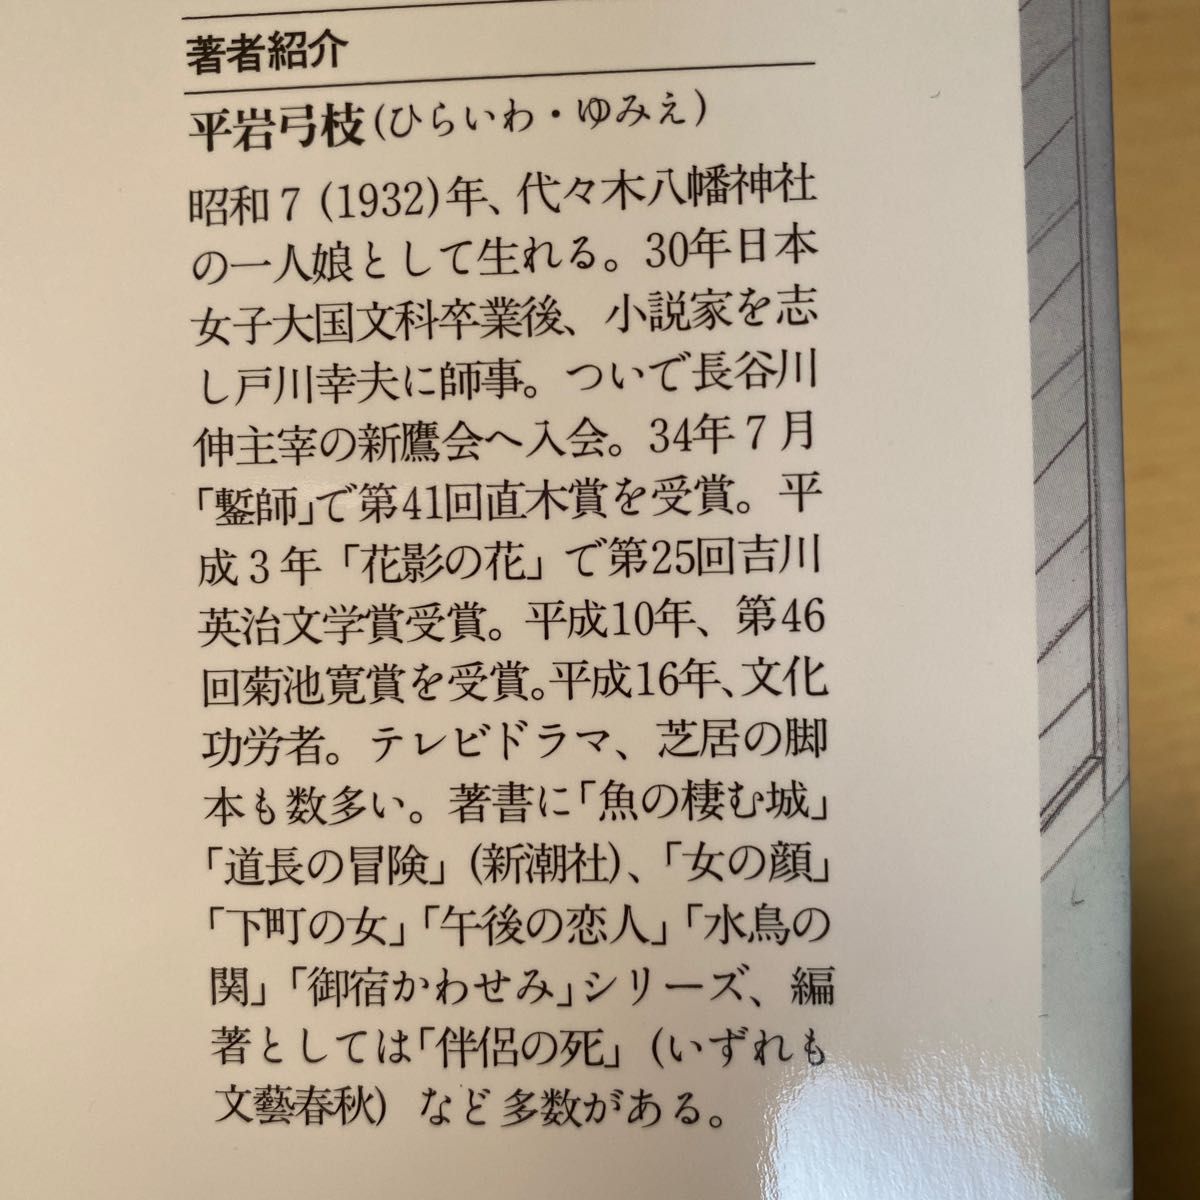 著者紹介
平岩弓枝(ひらいわ・ゆみえ)
昭和7(1932)年、代々木八幡神社
の一人娘として生れる。30年日本
女子大国文科卒業後、小説家を志
し戸川幸夫に師事。ついで長谷川
伸主宰の新鷹会へ入会。34年7月
「鏨師」で第41回直木賞を受賞。平
成3年「花影の花」で第25回吉川
英治文学賞受賞。平成10年、第46
回菊池寛賞を受賞。平成16年、文化
功労者。テレビドラマ、芝居の脚
本も数多い。著書に「魚の棲む城」
「道長の冒険」(新潮社)、「女の顔」
「下町の女」「午後の恋人」「水鳥の
関」「御宿かわせみ」シリーズ、編
著としては「伴侶の死」(いずれも
文藝春秋)など多数がある。